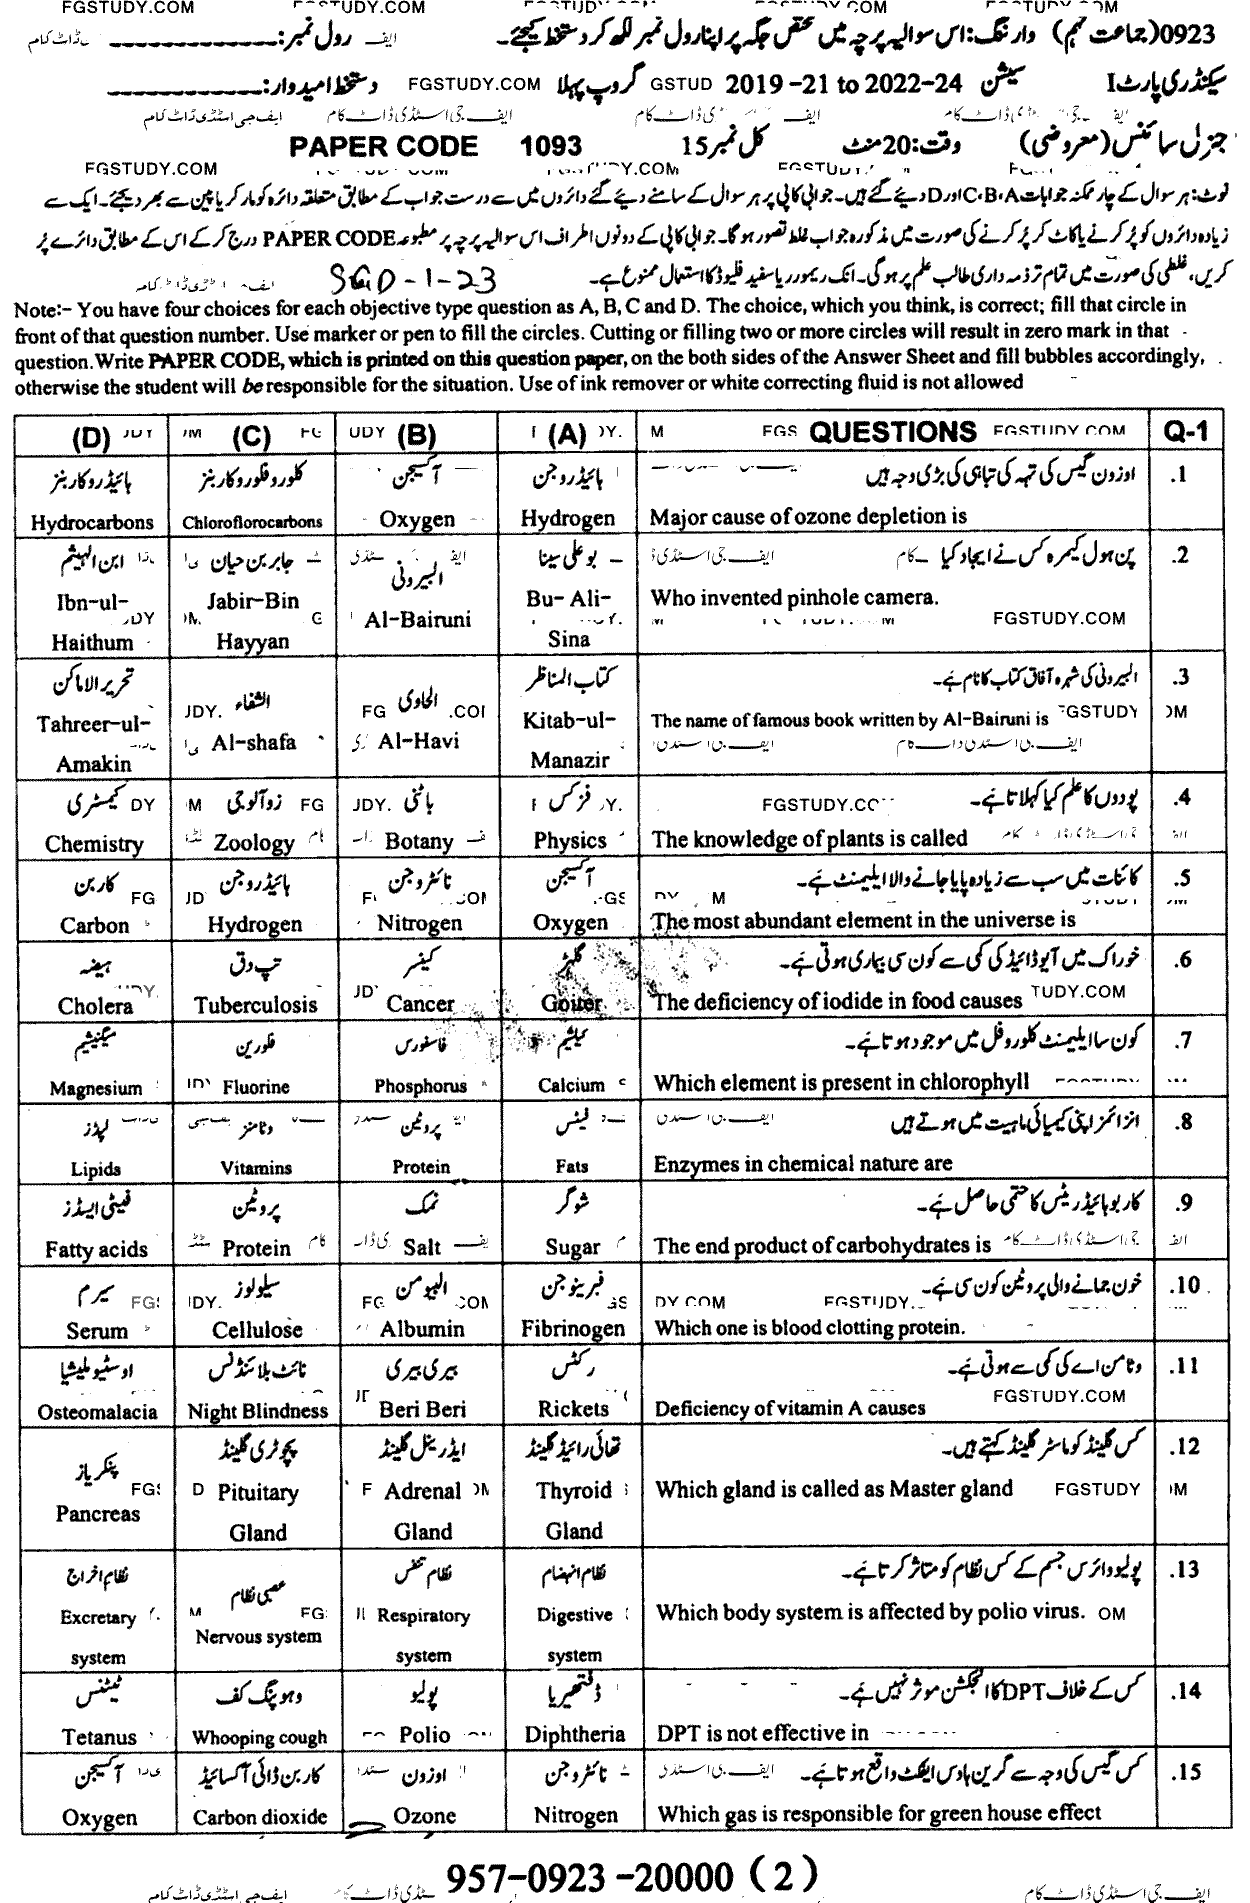 FGSTUDY.COM FGSTUDY.COM FGSTUDY.COM
0923(جماعت نہم) وارننگ: اس سوالیہ پرچہ میں مختص جگہ پر اپنا رول نمبر لکھ کر دستخط کیجئے۔ رول نمبر: ____________
سیکنڈری پارٹ I سیشن 2019 -21 to 2022-24 GSTUD گروپ پہلا FGSTUDY.COM دستخط امیدوار: ____________
ایف جی اسٹڈی ڈاٹ کام
جنرل سائنس (معروضی) وقت: 20 منٹ کل نمبر 15 PAPER CODE 1093
FGSTUDY.COM
نوٹ: ہر سوال کے چار ممکنہ جوابات A،B،C اور D دیئے گئے ہیں۔ جوابی کاپی پر ہر سوال کے سامنے دیئے گئے دائروں میں سے درست جواب کے مطابق متعلقہ دائرہ کو مارکر یا پین سے بھر دیجئے۔ ایک سے
زیادہ دائروں کو پُر کرنے یا کاٹ کر پُر کرنے کی صورت میں مذکورہ جواب غلط تصور ہوگا۔ جوابی کاپی کے دونوں اطراف اس سوالیہ پرچہ پر مطبوعہ PAPER CODE درج کرکے اس کے مطابق دائرے پُر
کریں، غلطی کی صورت میں تمام تر ذمہ داری طالب علم پر ہوگی۔ انک ریموور یا سفید فلیوڈ کا استعمال ممنوع ہے۔ SGD-1-23
Note:- You have four choices for each objective type question as A, B, C and D. The choice, which you think, is correct; fill that circle in
front of that question number. Use marker or pen to fill the circles. Cutting or filling two or more circles will result in zero mark in that
question.Write PAPER CODE, which is printed on this question paper, on the both sides of the Answer Sheet and fill bubbles accordingly,
otherwise the student will be responsible for the situation. Use of ink remover or white correcting fluid is not allowed
(D) (C) (B) (A) QUESTIONS FGSTUDY.COM Q-1
ہائیڈروکاربنز کلوروفلوروکاربنز آکسیجن ہائیڈروجن اوزون گیس کی تہہ کی تباہی کی بڑی وجہ ہیں .1
Hydrocarbons Chloroflorocarbons Oxygen Hydrogen Major cause of ozone depletion is
ابن الہیثم جابر بن حیان البیرونی بوعلی سینا پن ہول کیمرہ کس نے ایجاد کیا .2
Ibn-ul-Haithum Jabir-Bin Hayyan Al-Bairuni Bu- Ali-Sina Who invented pinhole camera. FGSTUDY.COM
تحریر الاماکن الشفاء الحاوی کتاب المناظر البیرونی کی شہرہ آفاق کتاب کا نام ہے۔ .3
Tahreer-ul-Amakin Al-shafa Al-Havi Kitab-ul-Manazir The name of famous book written by Al-Bairuni is FGSTUDY
کیمسٹری زوآلوجی باٹنی فزکس پودوں کا علم کیا کہلاتا ہے۔ .4
Chemistry Zoology Botany Physics The knowledge of plants is called
کاربن ہائیڈروجن نائٹروجن آکسیجن کائنات میں سب سے زیادہ پایا جانے والا ایلیمنٹ ہے۔ .5
Carbon Hydrogen Nitrogen Oxygen The most abundant element in the universe is
ہیضہ تپ دق کینسر گلہڑ خوراک میں آیوڈائیڈ کی کمی سے کون سی بیماری ہوتی ہے۔ .6
Cholera Tuberculosis Cancer Goiter The deficiency of iodide in food causes TUDY.COM
میگنیشیم فلورین فاسفورس کیلشیم کون سا ایلیمنٹ کلوروفل میں موجود ہوتا ہے۔ .7
Magnesium Fluorine Phosphorus Calcium Which element is present in chlorophyll
لپڈز وٹامنز پروٹین فیٹس انزائمز اپنی کیمیائی ماہیت میں ہوتے ہیں .8
Lipids Vitamins Protein Fats Enzymes in chemical nature are
فیٹی ایسڈز پروٹین نمک شوگر کاربوہائیڈریٹس کا حتمی حاصل ہے۔ .9
Fatty acids Protein Salt Sugar The end product of carbohydrates is
سیرم سیلولوز البیومن فبرینوجن خون جمانے والی پروٹین کون سی ہے۔ .10
Serum Cellulose Albumin Fibrinogen Which one is blood clotting protein.
اوسٹیوملیشیا نائٹ بلائنڈنس بیری بیری رکٹس وٹامن اے کی کمی سے ہوتی ہے۔ .11
Osteomalacia Night Blindness Beri Beri Rickets Deficiency of vitamin A causes FGSTUDY.COM
پنکریاز پچوٹری گلینڈ ایڈرینل گلینڈ تھائی رائیڈ گلینڈ کس گلینڈ کو ماسٹر گلینڈ کہتے ہیں۔ .12
Pancreas Pituitary Gland Adrenal Gland Thyroid Gland Which gland is called as Master gland FGSTUDY
نظام اخراج عصبی نظام نظام تنفس نظام انہضام پولیو وائرس جسم کے کس نظام کو متاثر کرتا ہے۔ .13
Excretary system Nervous system Respiratory system Digestive system Which body system is affected by polio virus. OM
ٹیٹنس وہوپنگ کف پولیو ڈفتھیریا کس کے خلاف DPT کا انجکشن موثر نہیں ہے۔ .14
Tetanus Whooping cough Polio Diphtheria DPT is not effective in
آکسیجن کاربن ڈائی آکسائیڈ اوزون نائٹروجن کس گیس کی وجہ سے گرین ہاؤس ایفکٹ واقع ہوتا ہے۔ .15
Oxygen Carbon dioxide Ozone Nitrogen Which gas is responsible for green house effect
957-0923 -20000 (2)
ایف جی اسٹڈی ڈاٹ کام